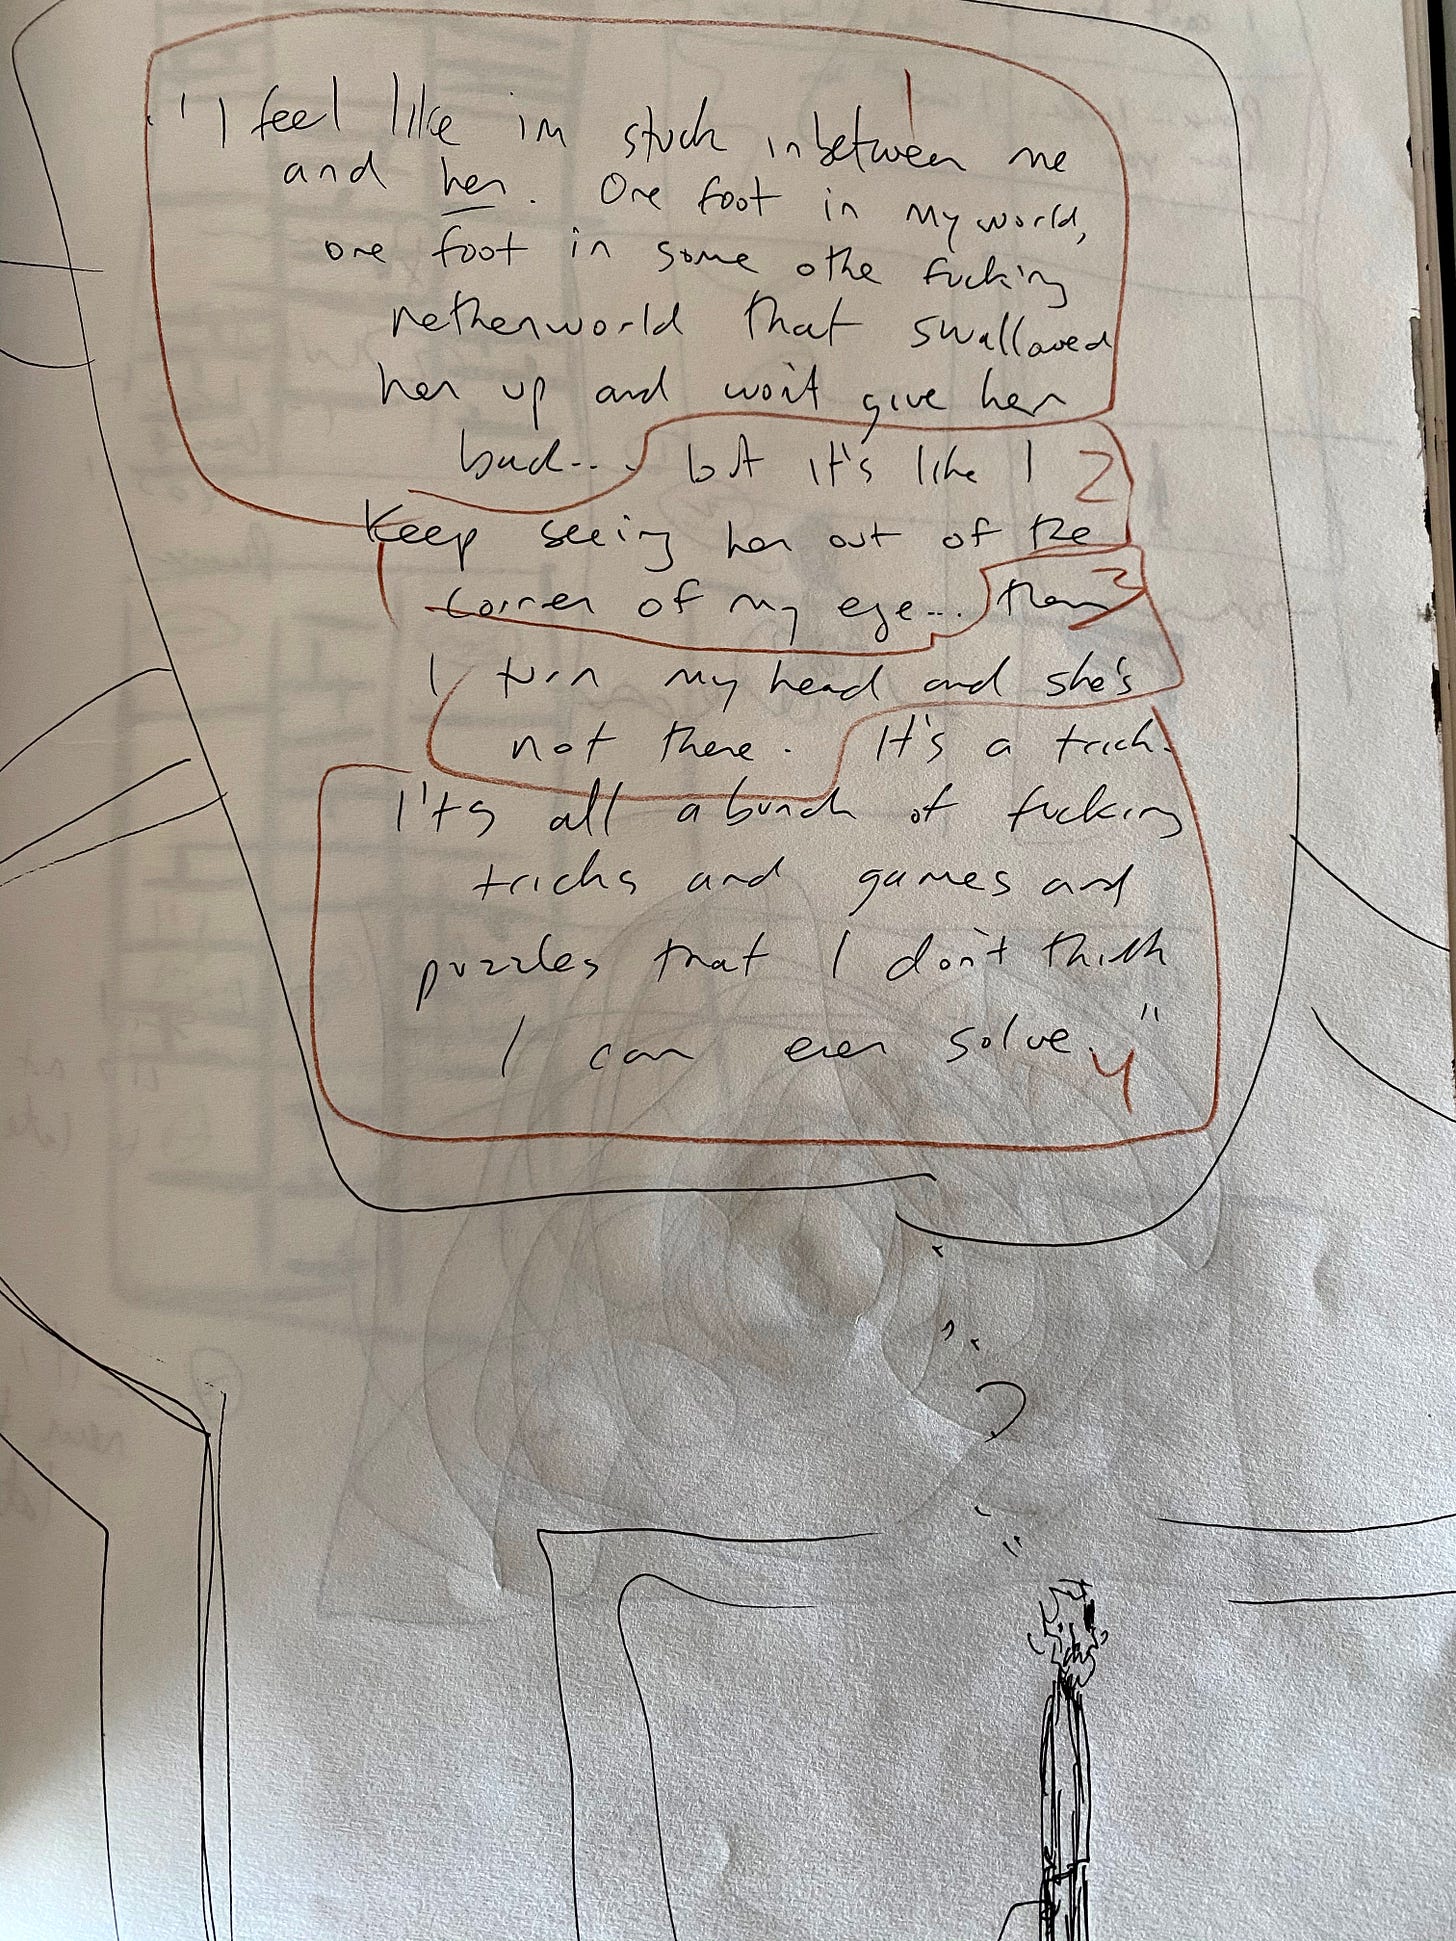 "I feel like im stuck inbetween me
and her. One foot in my world,
one foot in some othe fucking
netherworld that swallowed
her up and won't give her
back... but it's like I
Keep seeing her out of the
corner of my eye... then
I turn my head and she's
not there. It's a trick.
I'ts all a bunch of fucking
tricks and games and
puzzles that I don't think
I can ever solve."
1
2
3
4